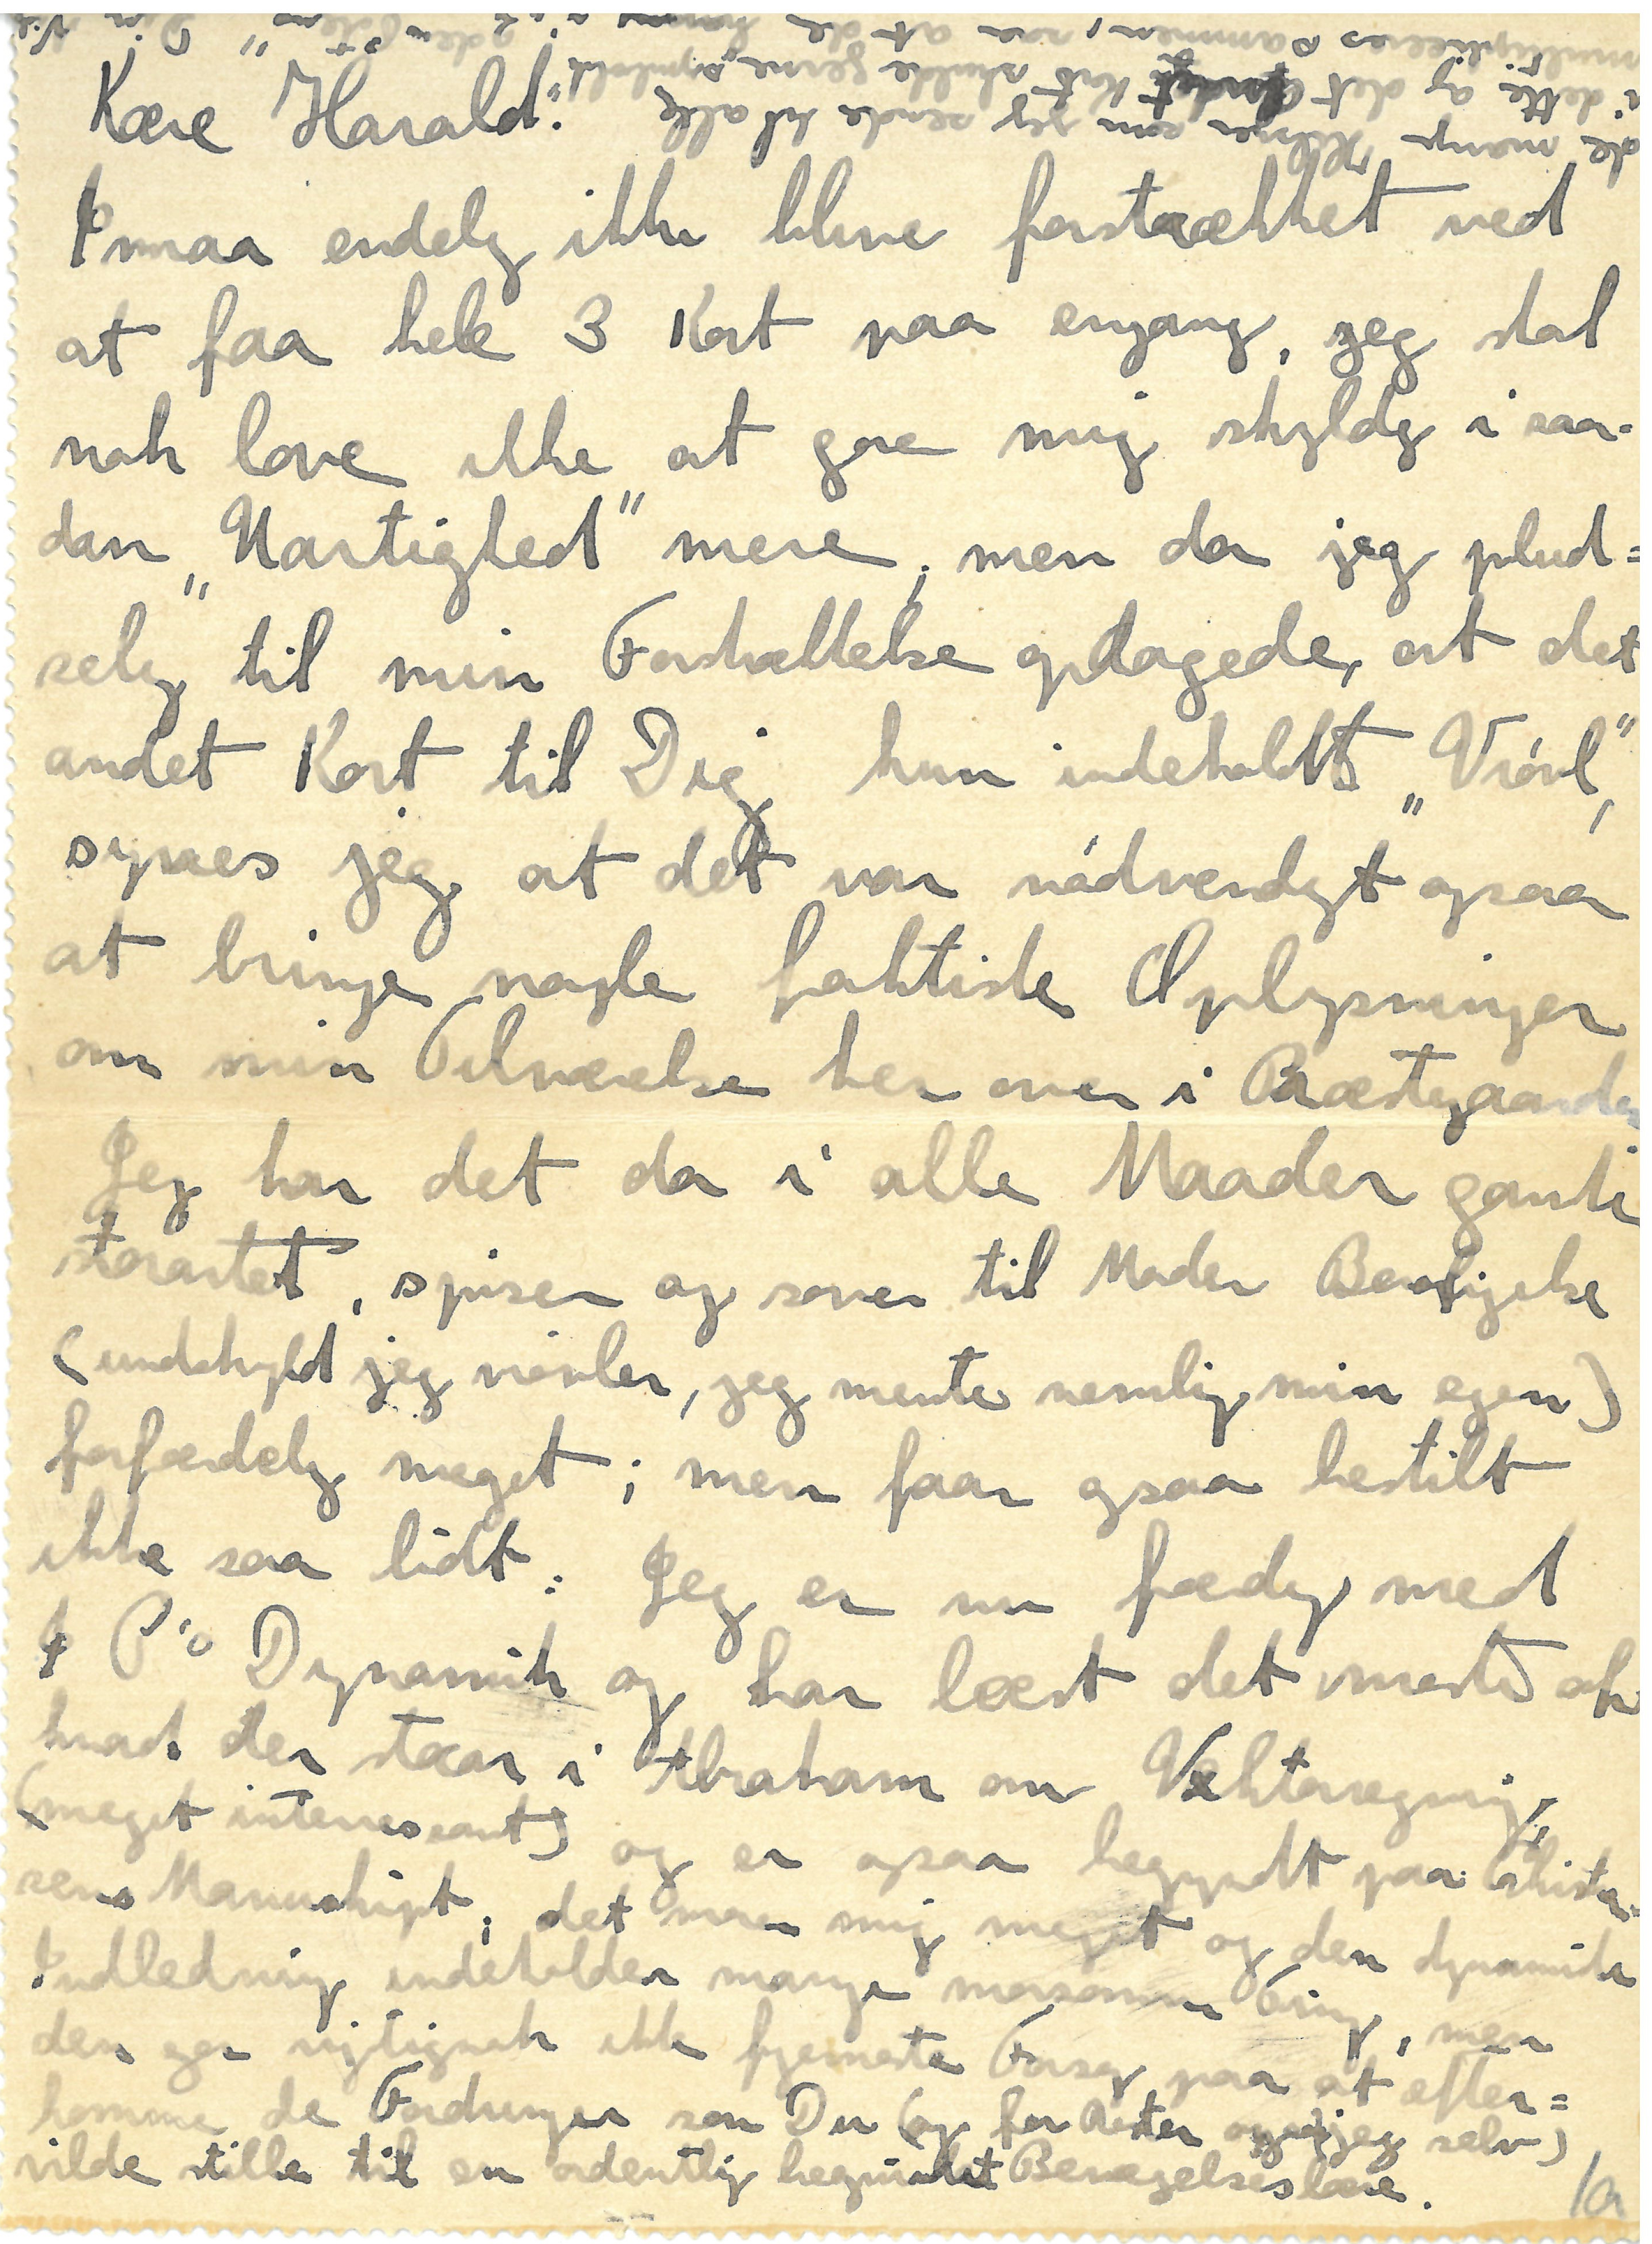 Kære Harald!
I maa endelig ikke blive forstrækket ved
at faa hele 3 Kort paa engang, jeg skal
nok love ikke at gøre mig skyldig i saa-
dan "Uartighed" mere; men da jeg plud=
selig til min Forskrækkelse opdagede, at det
andet Kort til Dig kun indeholdt "Vrövl",
synes jeg at det var nödvendigt ogsaa
at bringe nogle faktiske Oplysninger
om min Tilværelse her over i Præstegaarden
Jeg har det da i alle Maader ganske
storartet, spiser og sover til Moder
(undskyld jeg vrövler, jeg mente nemlig min egen)
forfærdelig meget; men faar ogsaa bestilt
ikke saa lidt: Jeg er nu færdig med
P's Dynamik og har læst det meste af
hvad der staar i Abraham om Vektorregning,
(meget interessant) og er ogsaa begyndt paa Christian-
sens Manuskript; det morer mig meget og den dynamiske
Indledning indeholder mange morsomme Ting, men
den gør rigtignok ikke fjerneste Forsøg paa at efter=
komme de Fordringer som Du (og for Resten ogsaa jeg selv)
vilde stille til en ordentlig begrundet Bevægelseslære.
1a
de mange Hilsner som jeg sender til alle
i dette og det andet Kort skulde gerne "symbolsk"
multipliceres sammen, saa at de